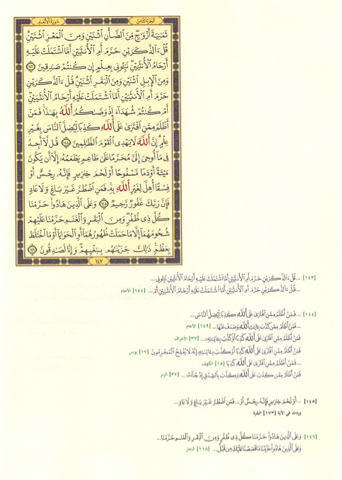 الجزء الثامن سورة الأنعام
ثَمَٰنِيَةَ أَزْوَٰجٍ مِّنَ ٱلضَّأْنِ ٱثْنَيْنِ وَمِنَ ٱلْمَعْزِ ٱثْنَيْنِ
قُلْ ءَآلذَّكَرَيْنِ حَرَّمَ أَمِ ٱلْأُنثَيَيْنِ أَمَّا ٱشْتَمَلَتْ عَلَيْهِ
أَرْحَامُ ٱلْأُنثَيَيْنِ نَبِّـُٔونِى بِعِلْمٍ إِن كُنتُمْ صَٰدِقِينَ ١٤٣
وَمِنَ ٱلْإِبِلِ ٱثْنَيْنِ وَمِنَ ٱلْبَقَرِ ٱثْنَيْنِ قُلْ ءَآلذَّكَرَيْنِ
حَرَّمَ أَمِ ٱلْأُنثَيَيْنِ أَمَّا ٱشْتَمَلَتْ عَلَيْهِ أَرْحَامُ ٱلْأُنثَيَيْنِ
أَمْ كُنتُمْ شُهَدَآءَ إِذْ وَصَّىٰكُمُ ٱللَّهُ بِهَٰذَا فَمَنْ
أَظْلَمُ مِمَّنِ ٱفْتَرَىٰ عَلَى ٱللَّهِ كَذِبًا لِّيُضِلَّ ٱلنَّاسَ بِغَيْرِ
عِلْمٍ إِنَّ ٱللَّهَ لَا يَهْدِى ٱلْقَوْمَ ٱلظَّٰلِمِينَ ١٤٤ قُل لَّآ أَجِدُ
فِى مَآ أُوحِىَ إِلَىَّ مُحَرَّمًا عَلَىٰ طَاعِمٍ يَطْعَمُهُۥٓ إِلَّآ أَن يَكُونَ
مَيْتَةً أَوْ دَمًا مَّسْفُوحًا أَوْ لَحْمَ خِنزِيرٍ فَإِنَّهُۥ رِجْسٌ أَوْ
فِسْقًا أُهِلَّ لِغَيْرِ ٱللَّهِ بِهِۦ فَمَنِ ٱضْطُرَّ غَيْرَ بَاغٍ وَلَا عَادٍ
فَإِنَّ رَبَّكَ غَفُورٌ رَّحِيمٌ ١٤٥ وَعَلَى ٱلَّذِينَ هَادُوا۟ حَرَّمْنَا
كُلَّ ذِى ظُفُرٍ وَمِنَ ٱلْبَقَرِ وَٱلْغَنَمِ حَرَّمْنَا عَلَيْهِمْ
شُحُومَهُمَآ إِلَّا مَا حَمَلَتْ ظُهُورُهُمَآ أَوِ ٱلْحَوَايَآ أَوْ مَا ٱخْتَلَطَ
بِعَظْمٍ ذَٰلِكَ جَزَيْنَٰهُم بِبَغْيِهِمْ وَإِنَّا لَصَٰدِقُونَ ١٤٦
١٤٧
[١٤٣] ... قُلْ ءَآلذَّكَرَيْنِ حَرَّمَ أَمِ ٱلْأُنثَيَيْنِ أَمَّا ٱشْتَمَلَتْ عَلَيْهِ أَرْحَامُ ٱلْأُنثَيَيْنِ نَبِّـُٔونِى...
... قُلْ ءَآلذَّكَرَيْنِ حَرَّمَ أَمِ ٱلْأُنثَيَيْنِ أَمَّا ٱشْتَمَلَتْ عَلَيْهِ أَرْحَامُ ٱلْأُنثَيَيْنِ أَمْ... [١٤٤] الأنعام
[١٤٤] ... فَمَنْ أَظْلَمُ مِمَّنِ ٱفْتَرَىٰ عَلَى ٱللَّهِ كَذِبًا لِّيُضِلَّ ٱلنَّاسَ...
فَمَنْ أَظْلَمُ مِمَّن كَذَّبَ بِـَٔايَٰتِ ٱللَّهِ وَصَدَفَ عَنْهَا... الأنعام
فَمَنْ أَظْلَمُ مِمَّنِ ٱفْتَرَىٰ عَلَى ٱللَّهِ كَذِبًا أَوْ كَذَّبَ بِـَٔايَٰتِهِۦٓ... [٣٧] الأعراف
فَمَنْ أَظْلَمُ مِمَّنِ ٱفْتَرَىٰ عَلَى ٱللَّهِ كَذِبًا أَوْ كَذَّبَ بِـَٔايَٰتِهِۦٓ إِنَّهُۥ لَا يُفْلِحُ ٱلْمُجْرِمُونَ [١٧] يونس
فَمَنْ أَظْلَمُ مِمَّنِ ٱفْتَرَىٰ عَلَى ٱللَّهِ كَذِبًا [١٥] الكهف
فَمَنْ أَظْلَمُ مِمَّن كَذَبَ عَلَى ٱللَّهِ وَكَذَّبَ بِٱلصِّدْقِ إِذْ جَآءَهُۥٓ... [٣٢] الزمر
[١٤٥] ... أَوْ لَحْمَ خِنزِيرٍ فَإِنَّهُۥ رِجْسٌ أَوْ ... فَمَنِ ٱضْطُرَّ غَيْرَ بَاغٍ وَلَا عَادٍ...
وردت في الآية [١٧٣] البقرة
[١٤٦] وَعَلَى ٱلَّذِينَ هَادُوا۟ حَرَّمْنَا كُلَّ ذِى ظُفُرٍ وَمِنَ ٱلْبَقَرِ وَٱلْغَنَمِ حَرَّمْنَا...
وَعَلَى ٱلَّذِينَ هَادُوا۟ حَرَّمْنَا مَا قَصَصْنَا عَلَيْكَ مِن قَبْلُ... [١١٨] النحل